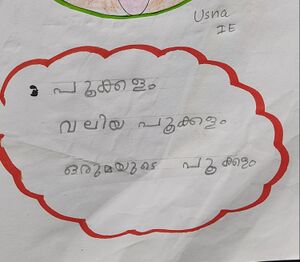 Usna
IE
പൂക്കളം
വലിയ പൂക്കളം
ഒരുമയുടെ പൂക്കളം